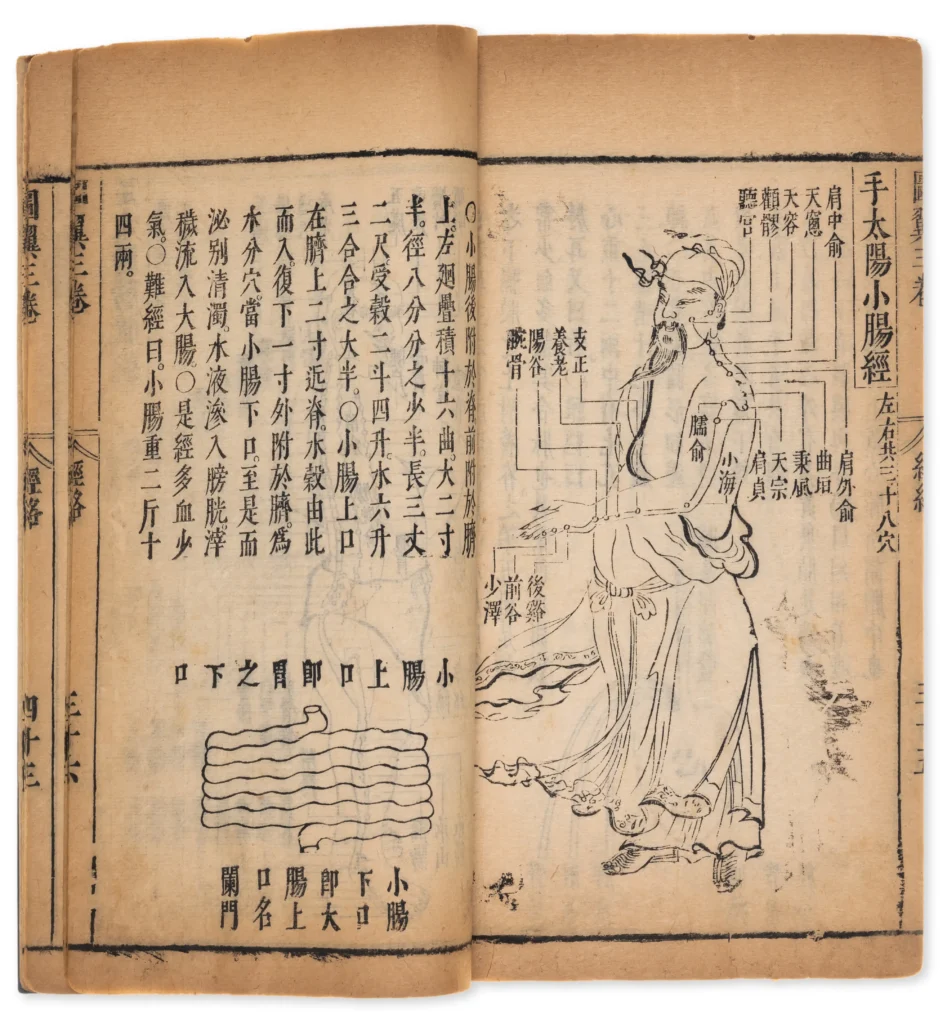 圖翼三卷
經絡
三十五
手太陽小腸經
左右共三十八穴
肩中俞
天窻
天容
顴髎
聽宮
支正
養老
陽谷
腕骨
肩外俞
曲垣
秉風
天宗
肩貞
臑俞
小海
後谿
前谷
少澤
〇小腸後附於脊前附於臍
上。左廻疊積十六曲。大二寸
半。徑八分分之少半。長三丈
二尺。受穀二斗四升。水六升
三合合之大半。〇小腸上口
在臍上二寸近脊。水穀由此
而入。復下一寸外附於臍。為
水分穴。當小腸下口。至是而
泌別清濁。水液滲入膀胱。滓
穢流入大腸。〇是經多血少
氣。〇難經曰。小腸重二斤十
四兩。
小腸上口即胃之下口
小腸
下口
即大
腸上
口名
闌門
圖翼三卷
經絡
三十六
圖翼三卷
經絡
四十三